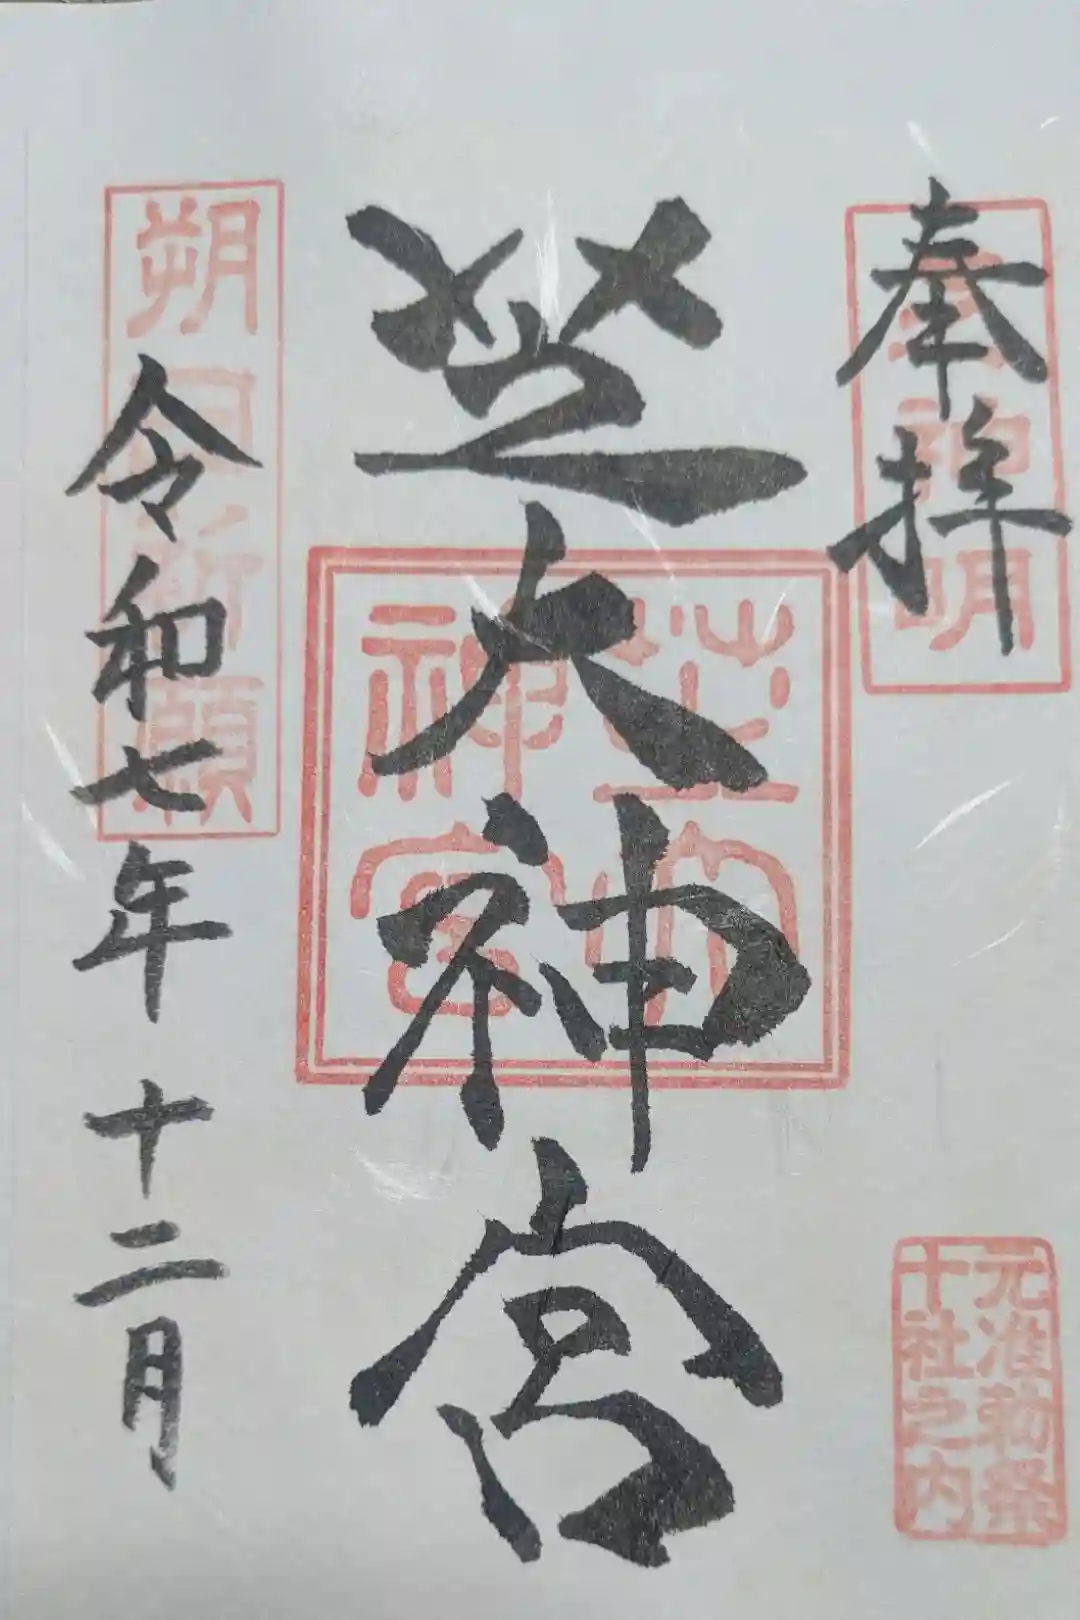 奉拝
芝大神宮
令和七年十二月
朔日祈願
芝大
神宮
元准勅祭
十社之内